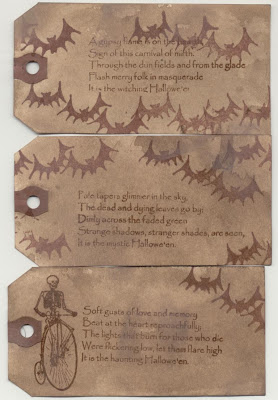 A gypsy flame is on the hearth,
Sign of this carnival of mirth.
Through the dun fields and from the glade
Flash merry folk in masquerade
It is the witching Hallowe'en
Pale tapers glimmer in the sky,
The dead and dying leaves go by;
Dimly across the faded green
Strange shadows, stranger shades, are seen,
It is the mystic Hallowe'en.
Soft gusts of love and memory
Beat at the heart reproachfully;
The lights that burn for those who die
Were flickering low, let them flare high
It is the haunting Hallowe'en.